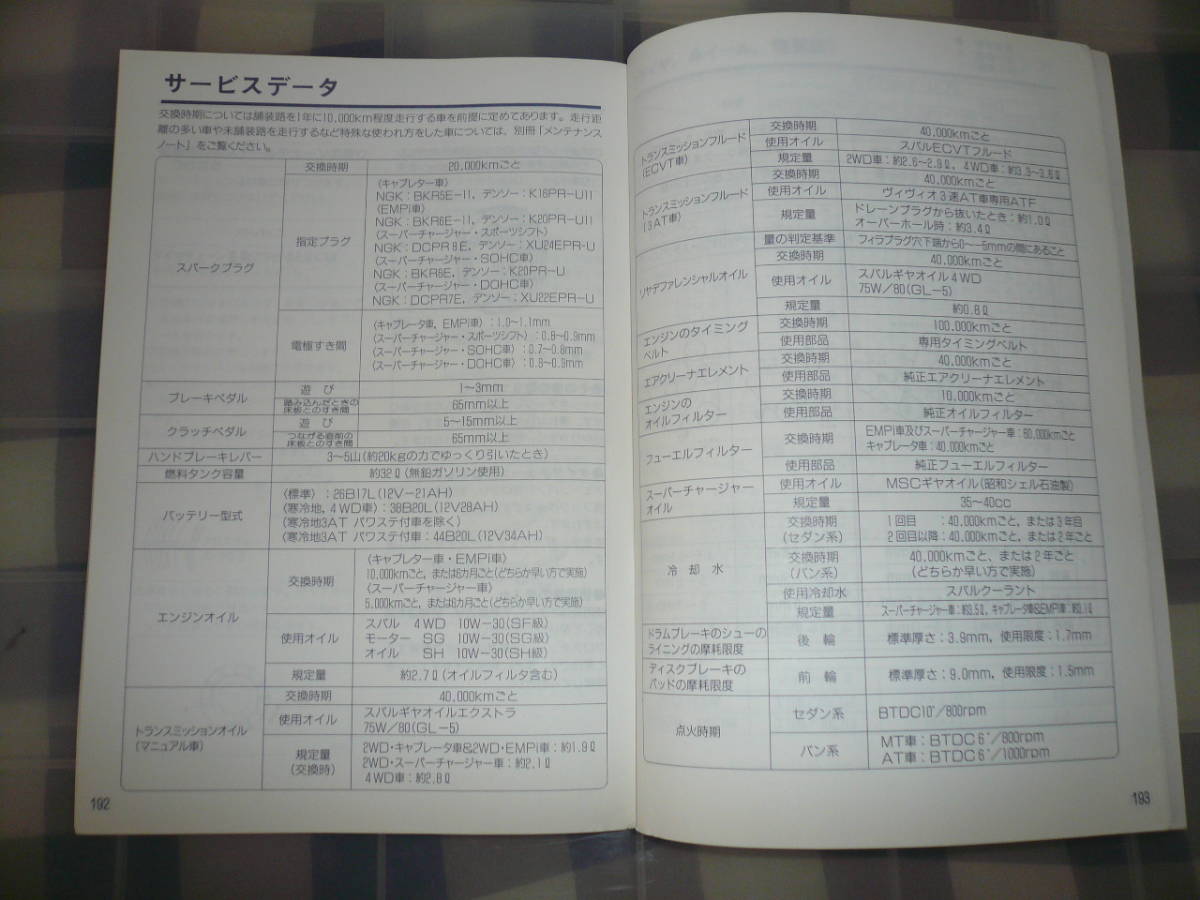 サービスデータ
交換時期については舗装路を1年に10,000km程度走行する車を前提に定めてあります。走行距
離の多い車や未舗装路を走行するなど特殊な使われ方をした車については、別冊「メンテナンス
ノート」をご覧ください。
スパークプラグ
交換時期
20,000kmごと
指定プラグ
(キャブレター車)
NGK:BKR5E-11, デンソー:K16PR-U11
(EMPi車)
NGK:BKR6E-11, デンソー:K20PR-U11
(スーパーチャージャー・スポーツシフト)
NGK:DCPR8E, デンソー:XU24EPR-U
(スーパーチャージャー・SOHC車)
NGK:BKR6E, デンソー:K20PR-U
(スーパーチャージャー・DOHC車)
NGK:DCPR7E, デンソー:XU22EPR-U
電極すき間
(キャブレータ車, EMPi車):1.0~1.1mm
(スーパーチャージャー・スポーツシフト):0.8~0.9mm
(スーパーチャージャー・SOHC車):0.7~0.8mm
(スーパーチャージャー・DOHC車):0.8~0.9mm
ブレーキペダル
遊び
1~3mm
踏み込んだときの
床板とのすき間
65mm以上
クラッチペダル
遊び
5~15mm以上
つながる直前の
床板とのすき間
65mm以上
ハンドブレーキレバー
3~5山(約20kgの力でゆっくり引いたとき)
燃料タンク容量
約32ℓ(無鉛ガソリン使用)
バッテリー型式
(標準):26B17L(12V-21AH)
(寒冷地, 4WD車):38B20L(12V28AH)
(寒冷地3AT パワステ付車を除く)
(寒冷地3AT パワステ付車:44B20L(12V34AH)
エンジンオイル
交換時期
(キャブレター車・EMPi車)
10,000kmごと, または6カ月ごと(どちらか早い方で実施)
(スーパーチャージャー車)
5,000kmごと, または6カ月ごと(どちらか早い方で実施)
使用オイル
スバル 4WD 10W-30(SF級)
モーター SG 10W-30(SG級)
オイル SH 10W-30(SH級)
規定量
約2.7ℓ(オイルフィルタ含む)
トランスミッションオイル
(マニュアル車)
交換時期
40,000kmごと
使用オイル
スバルギヤオイルエクストラ
75W/80(GL-5)
規定量
(交換時)
2WD・キャブレータ車&2WD・EMPi車:約1.9ℓ
2WD・スーパーチャージャー車:約2.1ℓ
4WD車:約2.8ℓ
192
トランスミッションフルード
(ECVT車)
交換時期
40,000kmごと
使用オイル
スバルECVTフルード
規定量
2WD車:約2.6~2.9ℓ, 4WD車:約3.3~3.6ℓ
トランスミッションフルード
(3AT車)
交換時期
40,000kmごと
使用オイル
ヴィヴィオ3速AT車専用ATF
規定量
ドレーンプラグから抜いたとき:約1.0ℓ
オーバーホール時:約3.4ℓ
リヤデファレンシャルオイル
量の判定基準
フィラプラグ穴下端から0~5mmの間にあること
交換時期
40,000kmごと
使用オイル
スバルギヤオイル4WD
75W/80(GL-5)
規定量
約0.8ℓ
エンジンのタイミング
ベルト
交換時期
100,000kmごと
使用部品
専用タイミングベルト
エアクリーナエレメント
交換時期
40,000kmごと
使用部品
純正エアクリーナエレメント
エンジンの
オイルフィルター
交換時期
10,000kmごと
使用部品
純正オイルフィルター
フューエルフィルター
交換時期
EMPi車及びスーパーチャージャー車:60,000kmごと
キャブレータ車:40,000kmごと
使用部品
純正フューエルフィルター
スーパーチャージャー
オイル
使用オイル
MSCギヤオイル(昭和シェル石油製)
規定量
35~40cc
冷却水
交換時期
(セダン系)
1回目 :40,000kmごと, または3年目
2回目以降:40,000kmごと, または2年ごと
交換時期
(バン系)
40,000kmごと、または2年ごと
(どちらか早い方で実施)
使用冷却水
スバルクーラント
規定量
スーパーチャージャー車:約3.5ℓ, キャブレータ車&EMPi車:約3.1ℓ
ドラムブレーキのシューの
ライニングの摩耗限度
後輪
標準厚さ:3.9mm, 使用限度:1.7mm
ディスクブレーキの
パッドの摩耗限度
前輪
標準厚さ:9.0mm, 使用限度:1.5mm
点火時期
セダン系
BTDC10°/800rpm
バン系
MT車:BTDC6°/800rpm
AT車:BTDC6°/1000rpm
193